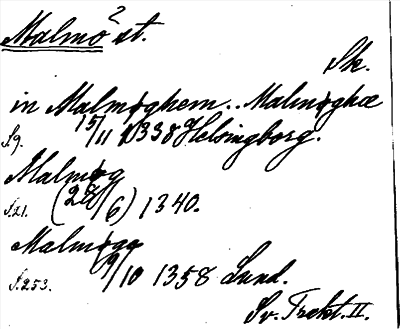 Malmö² st.
Sk.
in Malmøghem.. Malmøghæ
S.9. 15/11 1338 Helsingborg.
Malmøg
S.21. (29/6) 1340.
Malmøgø
S.253. 9/10 1358 Lund.
Sv. Trakt. II.